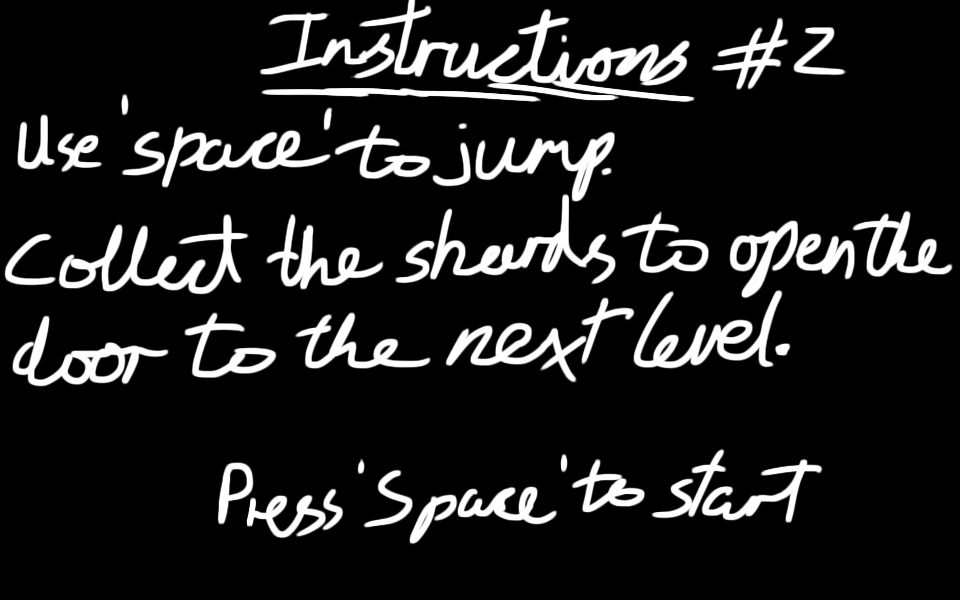 Instructions #2
Use 'space' to jump.
Collect the shards to open the
door to the next level.
Press 'Space' to start